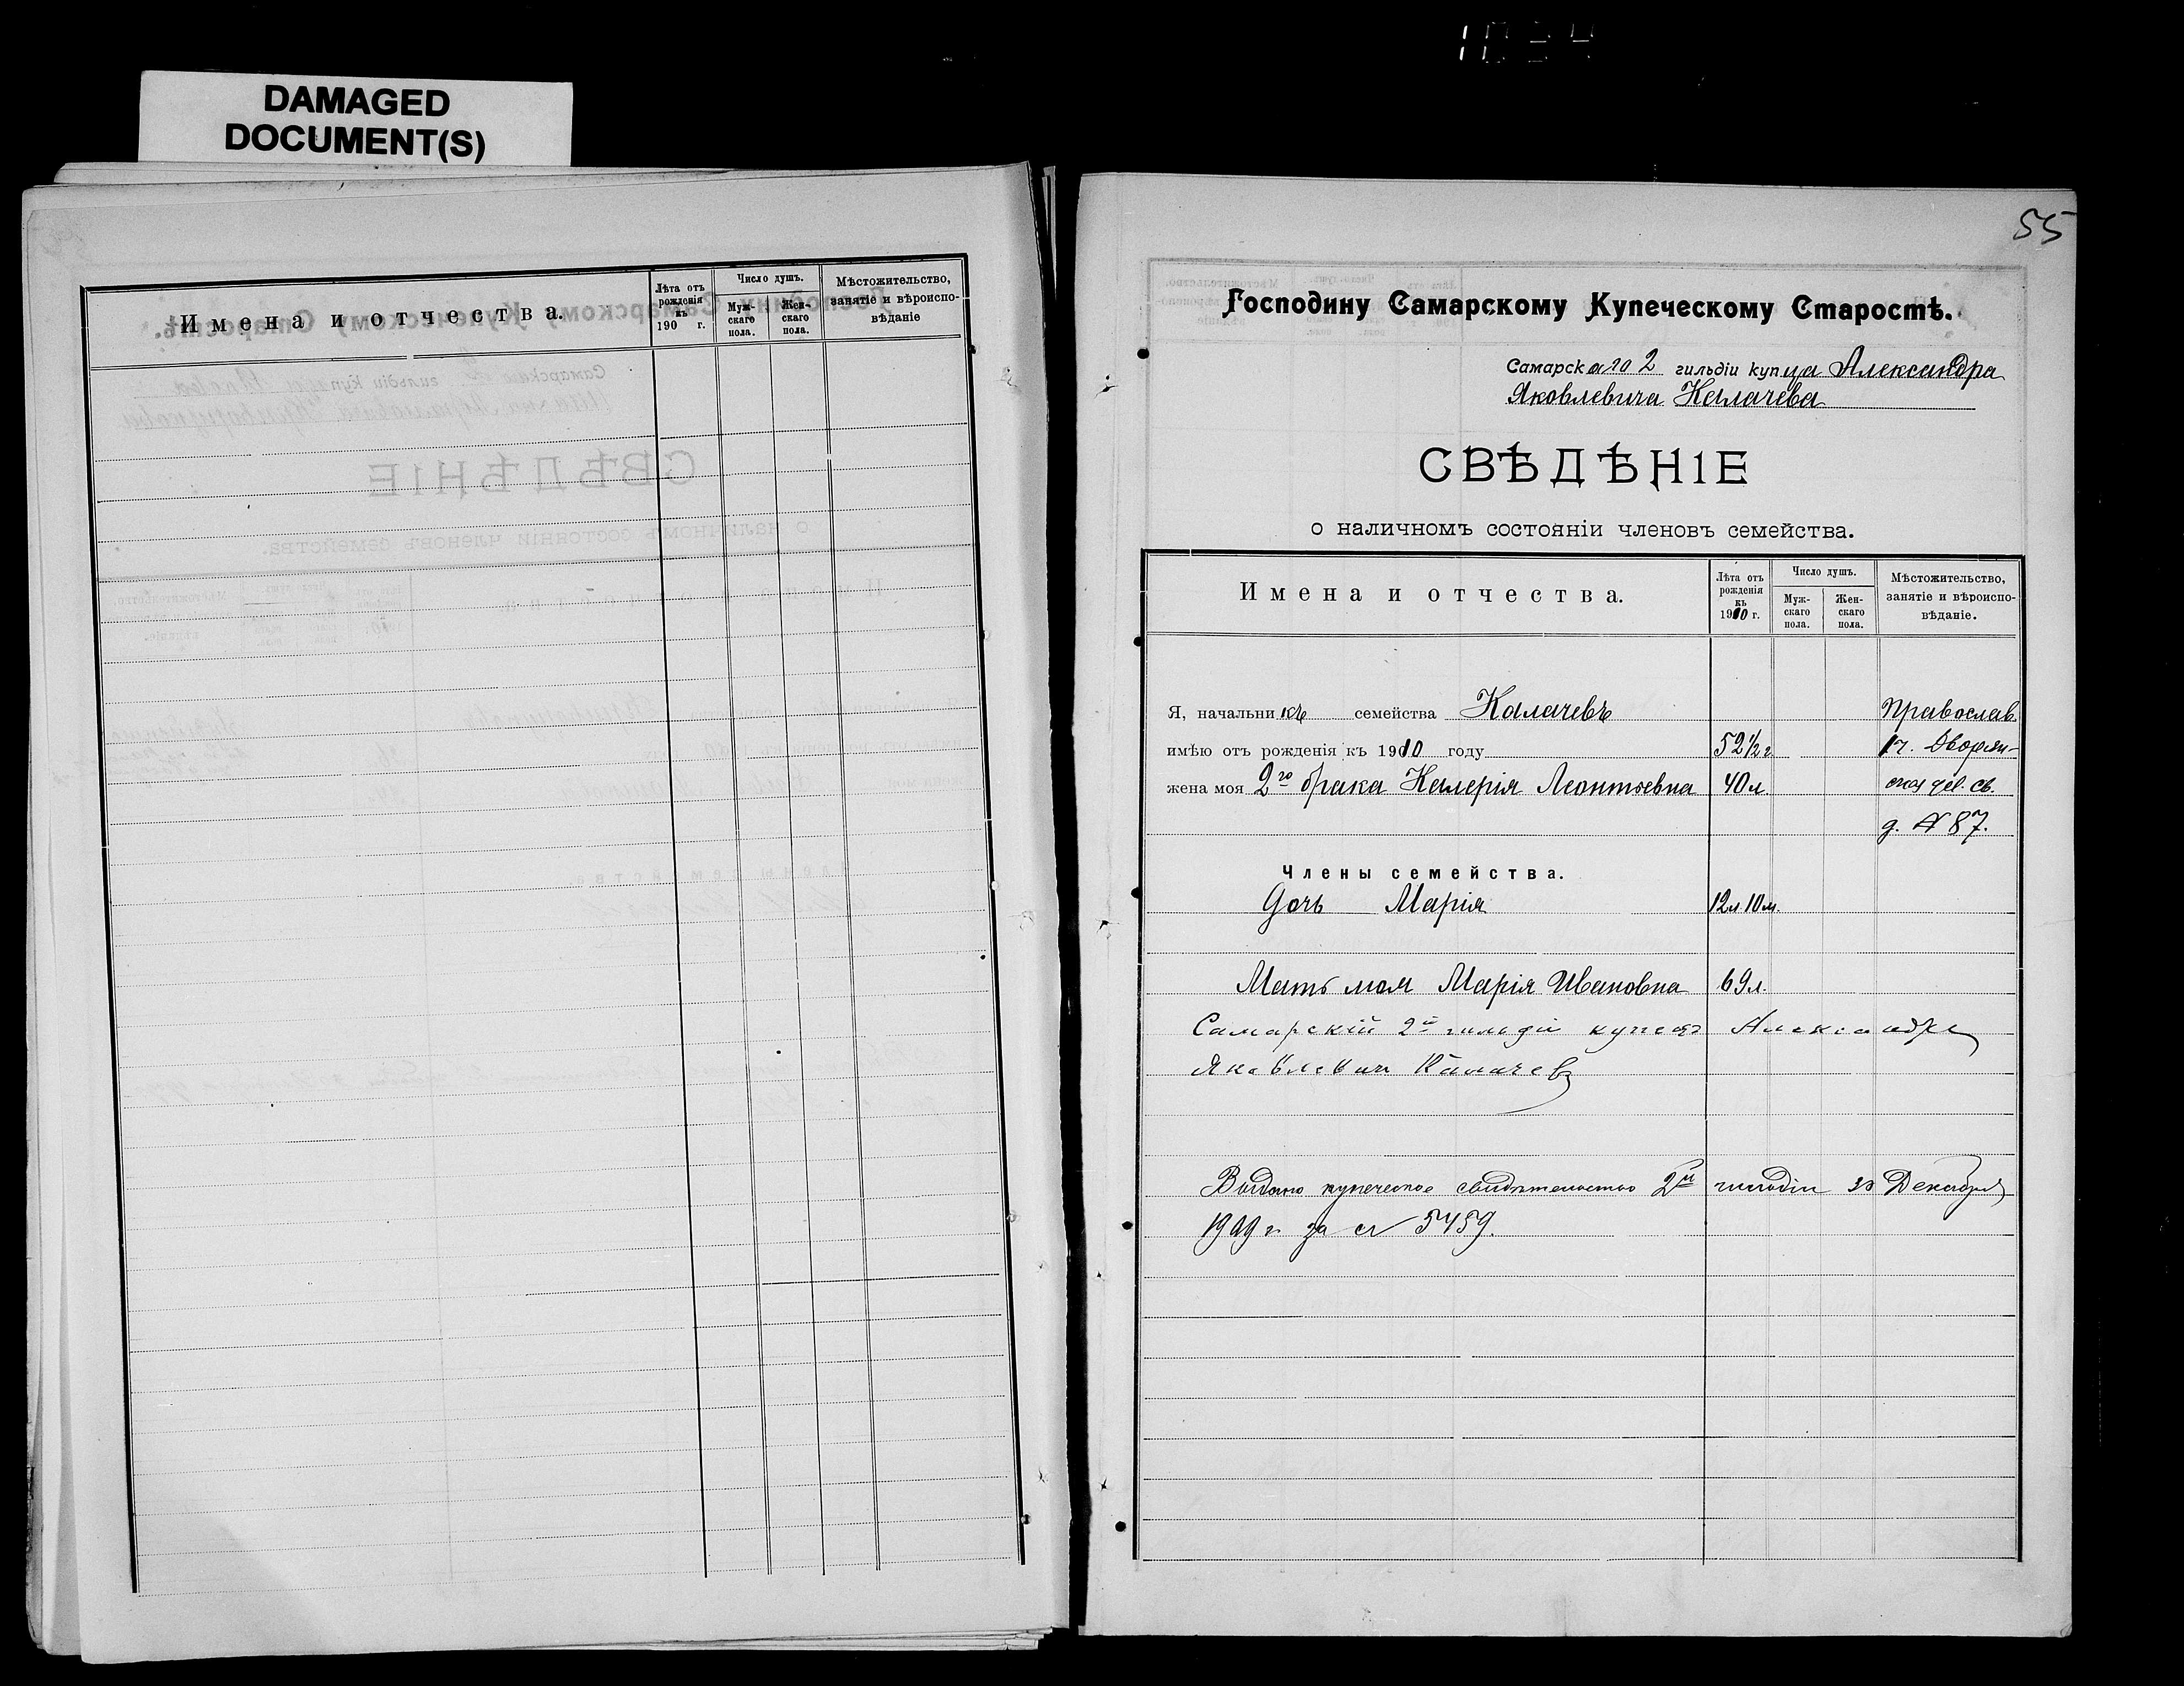 DAMAGED
DOCUMENT(S)
Имена и отчества.
Лѣта отъ рожденія къ 190 г.
Число душъ.
Муж-скаго пола.
Жен-скаго пола.
Мѣстожительство, занятіе и вѣроиспо-вѣданіе
55
Господину Самарскому Купеческому Старостѣ.
Самарскаго 2 гильдіи купца Александра
Яковлевича Калачева
СВѢДѢНІЕ
о наличномъ состояніи членовъ семейства.
Имена и отчества.
Лѣта отъ рожденія къ 1910 г.
Число душъ.
Муж-скаго пола.
Жен-скаго пола.
Мѣстожительство, занятіе и вѣроиспо-вѣданіе.
Я, начальникъ семейства Калачевъ Православ.
имѣю отъ рожденія къ 1910 году 52 1/2 г. Дворян-
жена моя 2го брака Калерія Леонтьевна 40 л. св.
д. № 87.
Члены семейства.
Дочь Марія 12 л 10 м.
Мать моя Марія Ивановна 69 л.
Самарскій 2й гильдіи купецъ Александръ
Яковлевич Калачевъ
Выдано купеческое свидѣтельство 2й гильдіи 30 Декабря
1909 г за № 5459.